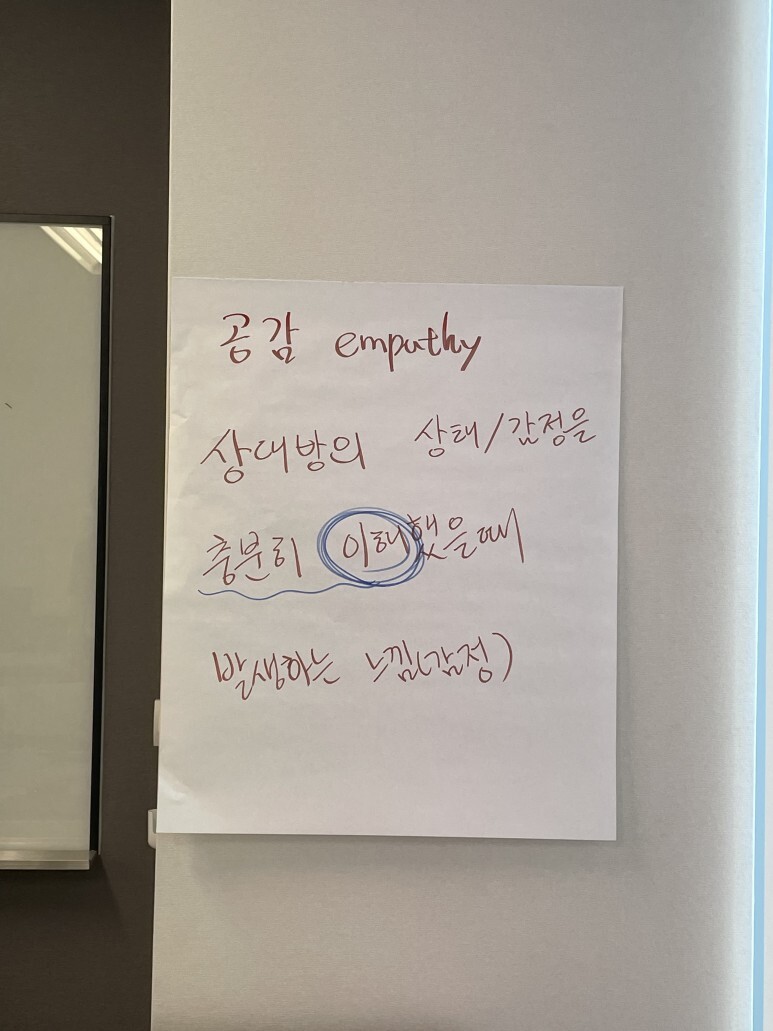 공감 empathy
상대방의 상태/감정을
충분히 이해했을때
발생하는 느낌(감정)